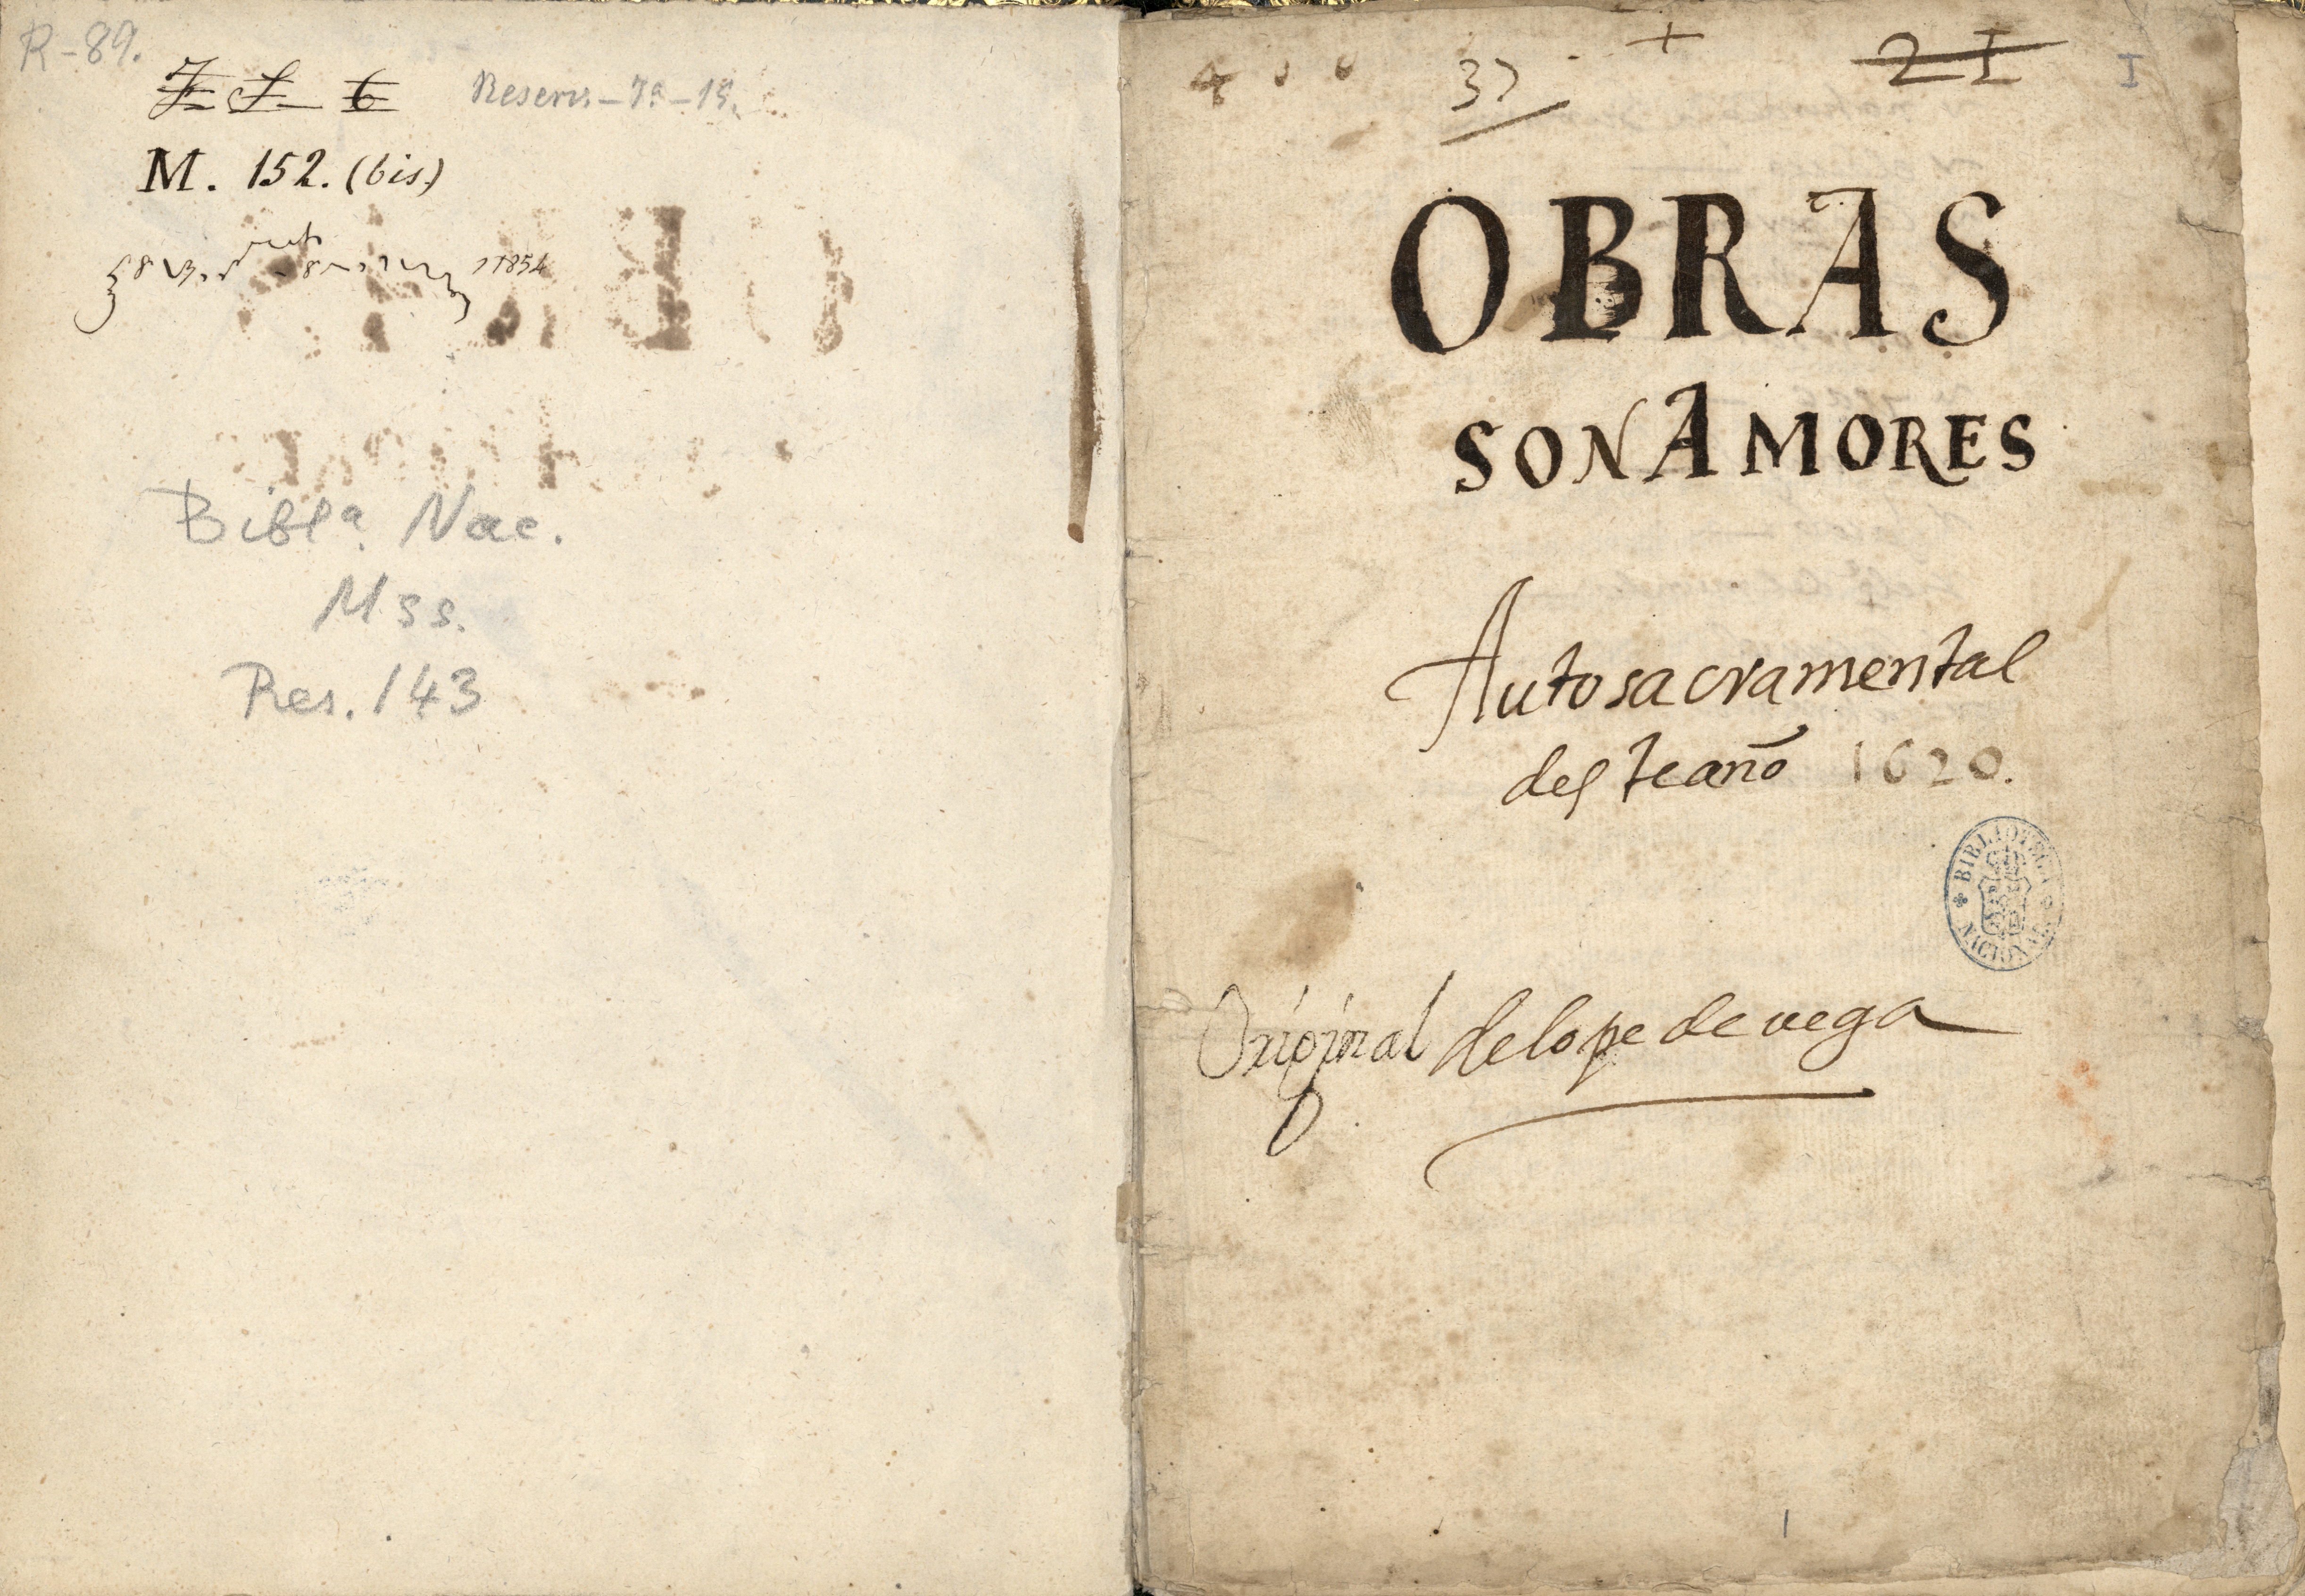 R-89.
M. 152. (bis)
1854
Bibl.ª Nac.
Mss.
Res. 143
37
+
21
I
OBRAS
SON AMORES
Auto sacramental
deste año 1620.
BIBLIOTECA NACIONAL
Original de lope de vega
1